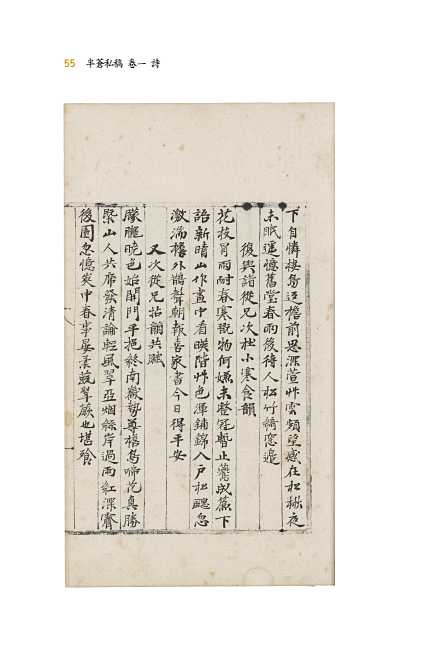 55 半蒼私稿 卷一 詩
下自憐棲鳥近檐前思深萱艸雲頻望感在松楸夜
未眠遙憶舊堂春雨後待人松竹綺窓邊
復與諸從兄次杜小寒食韻
花枝冒雨耐春寒戬物何嫌未整冠暫止鶯成簾下
語新晴山作畫中看暎階艸色渾鋪錦入戶松聽忽
激湍檐外鵲聲朝報喜家書今日得平安
又次從兄拈韻共賦
朦朧曉色始開門平挹終南嶽勢尊檐鳥啼花真勝
槩山人共席發清論輕風翠亞烟絲岸過雨紅深
後園忽憶峽中春事晏溪蔬翠蕨也堪飱